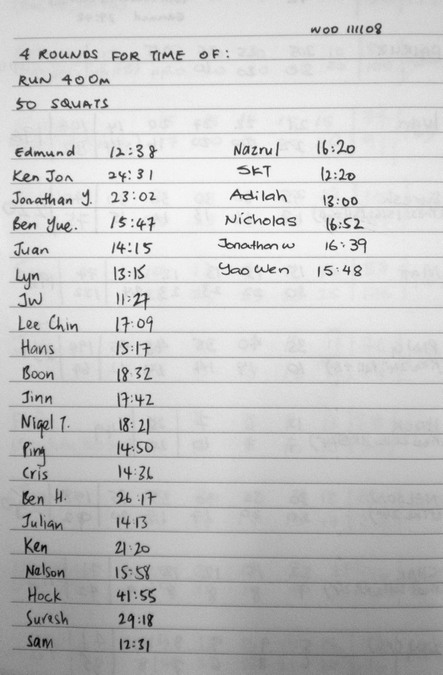 WOD 111108
4 ROUNDS FOR TIME OF:
RUN 400M
50 SQUATS
Edmund 12:38 Nazrul 16:20
Ken Jon 24:31 SKT 12:20
Jonathan Y. 23:02 Adilah 13:00
Ben Yue. 15:47 Nicholas 16:52
Juan 14:15 Jonathan W 16:39
Lyn 13:15 Yao Wen 15:48
JW 11:27
Lee Chin 17:09
Hans 15:17
Boon 18:32
Jinn 17:42
Nigel T. 18:21
Ping 14:50
Cris 14:36
Ben H. 26:17
Julian 14:13
Ken 21:20
Nelson 15:58
Hock 41:55
Suresh 29:18
Sam 12:31